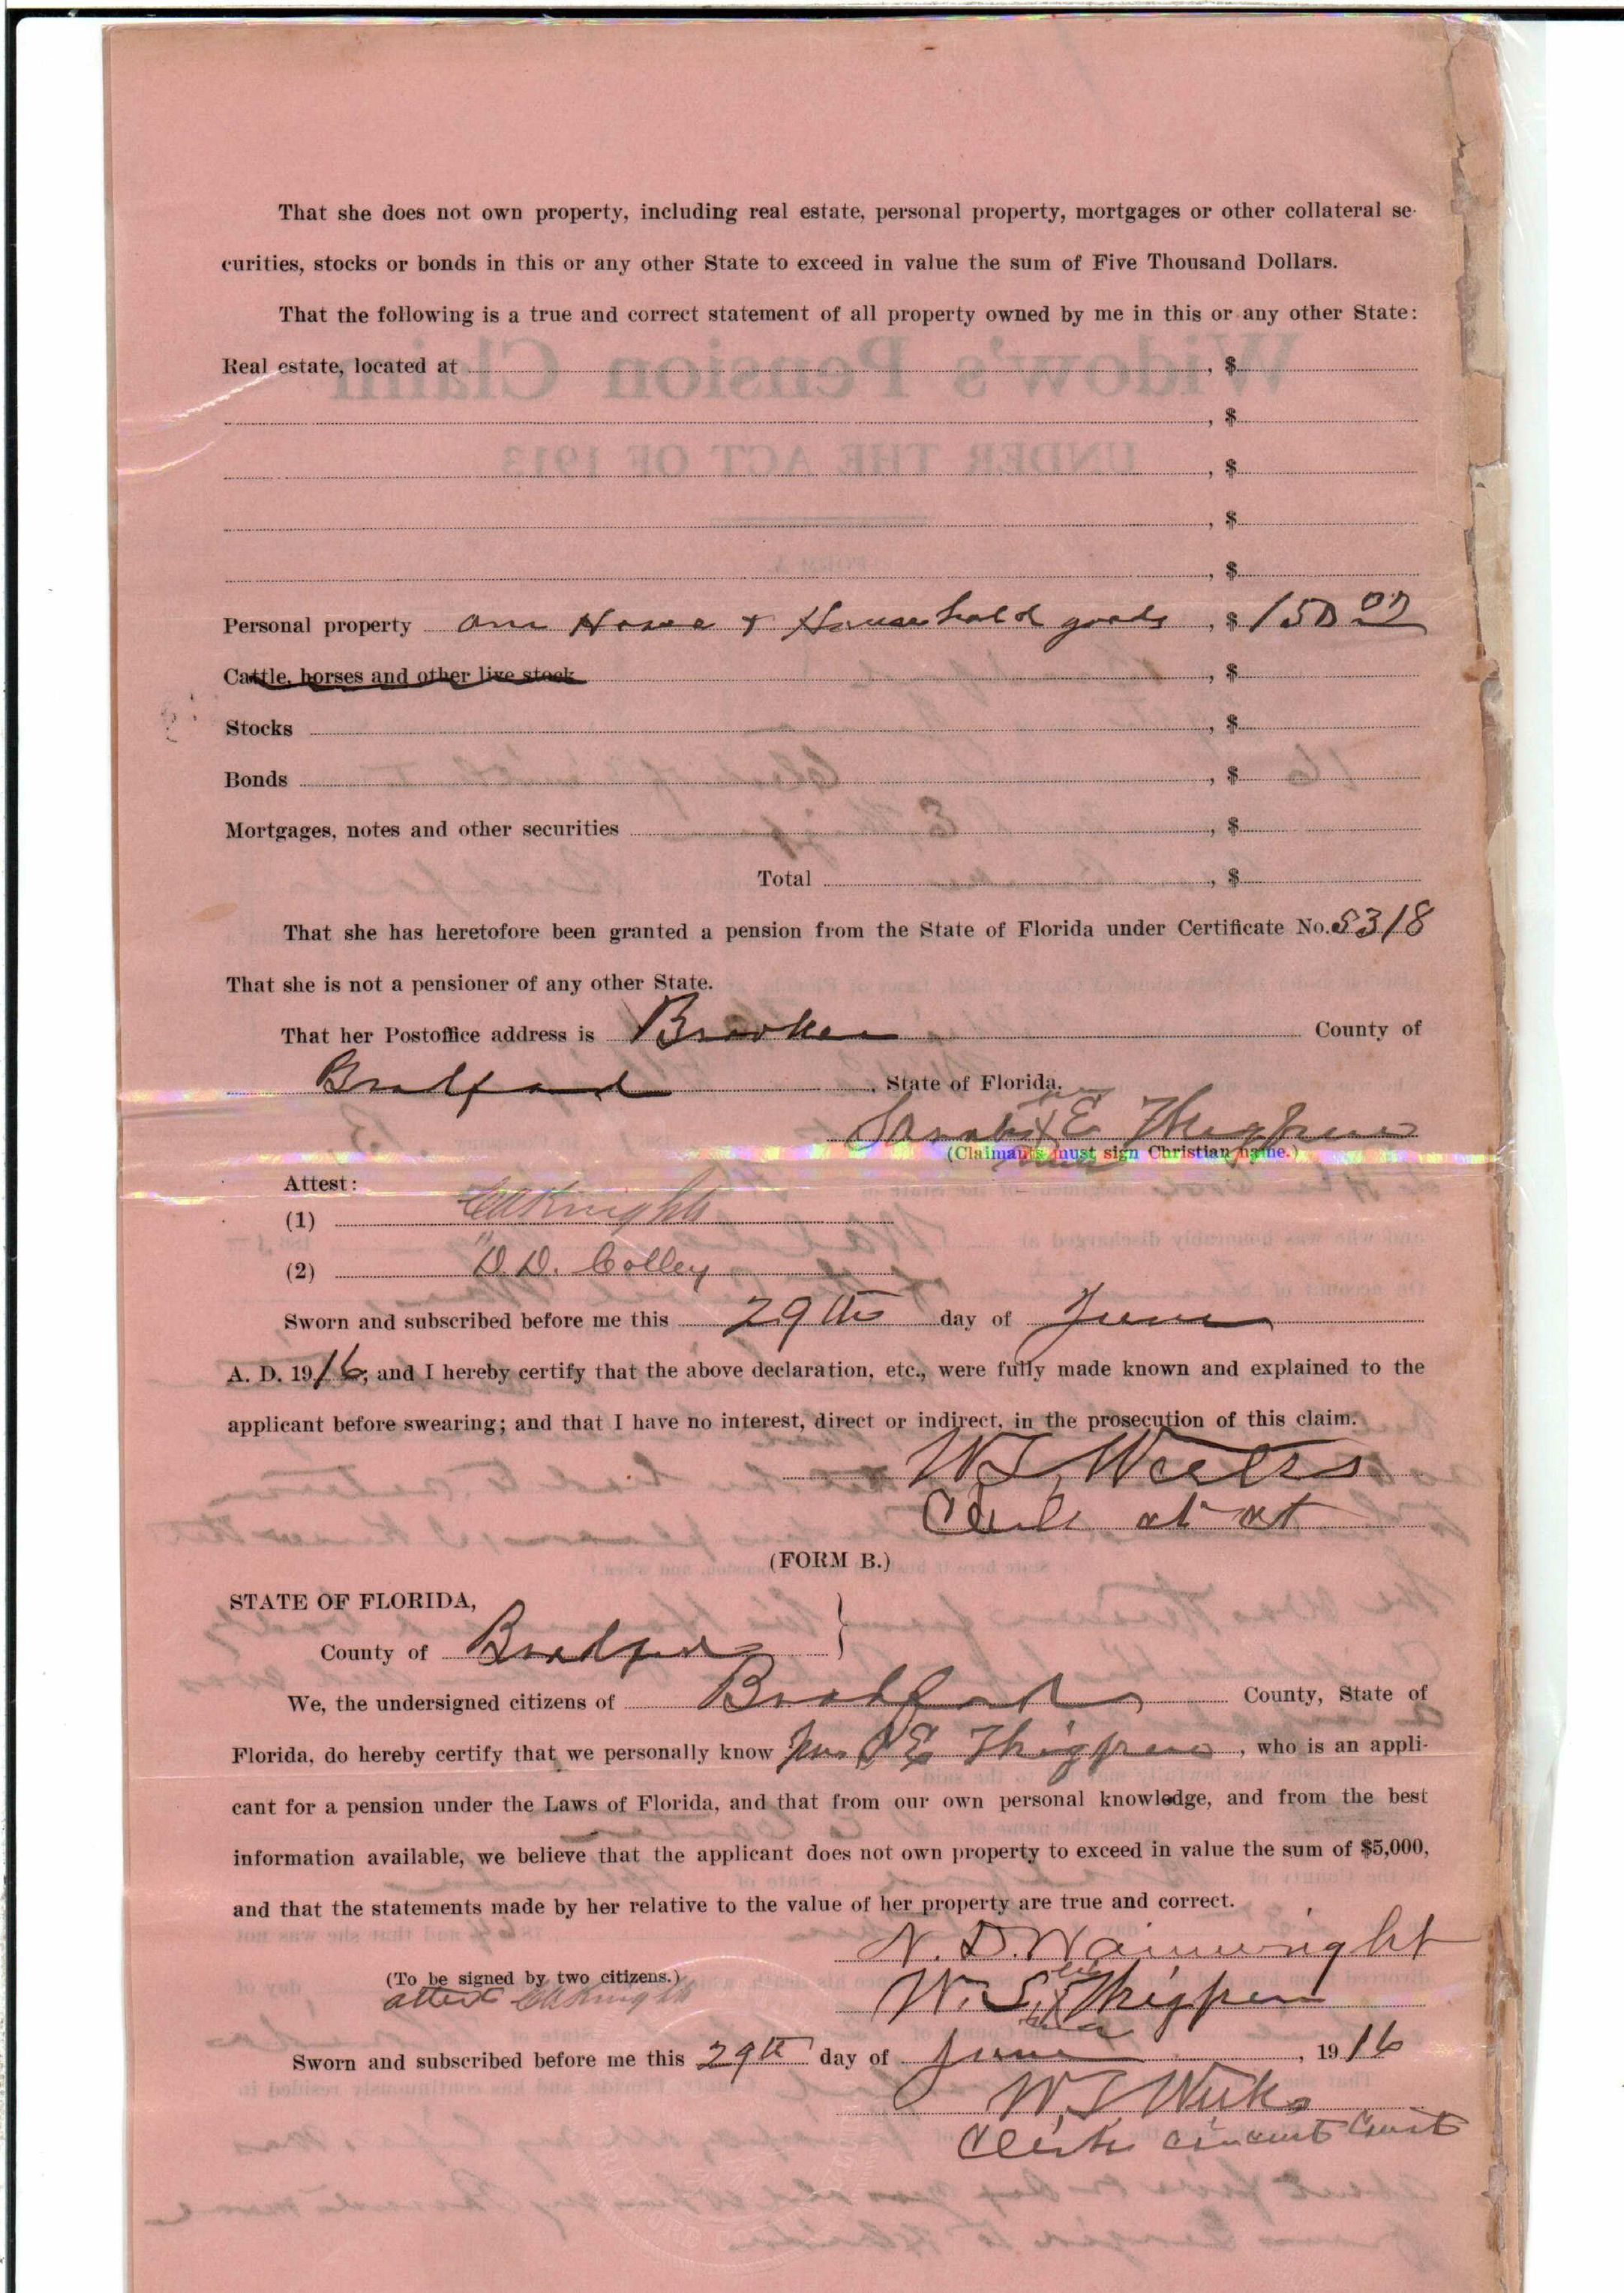 That she does not own property, including real estate, personal property, mortgages or other collateral se-
curities, stocks or bonds in this or any other State to exceed in value the sum of Five Thousand Dollars.
That the following is a true and correct statement of all property owned by me in this or any other State:
Real estate, located at , $
, $
, $
, $
, $
Personal property & Household goods , $ 150 00
Cattle, horses and other live stock , $
Stocks , $
Bonds , $
Mortgages, notes and other securities , $
Total , $
That she has heretofore been granted a pension from the State of Florida under Certificate No. 5318
That she is not a pensioner of any other State.
That her Postoffice address is Brooker County of
Bradford , State of Florida.
Sarah X E Thigpen
(Claimants must sign Christian name.)
Attest:
(1) Knight
(2) D. D. Colley
Sworn and subscribed before me this 29th day of June
A. D. 1916, and I hereby certify that the above declaration, etc., were fully made known and explained to the
applicant before swearing; and that I have no interest, direct or indirect, in the prosecution of this claim.
W. T. Weeks
Clerk ct ct
(FORM B.)
STATE OF FLORIDA,
County of Bradford
We, the undersigned citizens of Bradford County, State of
Florida, do hereby certify that we personally know Mrs S E Thigpen , who is an appli-
cant for a pension under the Laws of Florida, and that from our own personal knowledge, and from the best
information available, we believe that the applicant does not own property to exceed in value the sum of $5,000,
and that the statements made by her relative to the value of her property are true and correct.
N. D. Wainwright
(To be signed by two citizens.)
W. S. X Thigpen
attest Knight
Sworn and subscribed before me this 29th day of June , 1916
W. T. Weeks
Clerk circuit Court